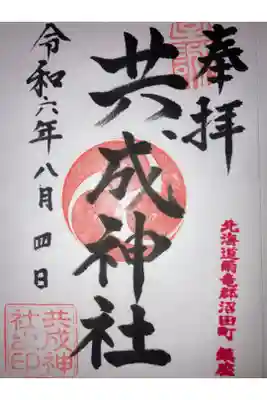 奉拝
北海道雨竜郡沼田町 鎮座
共成神社
令和六年八月四日
共成神
社之印